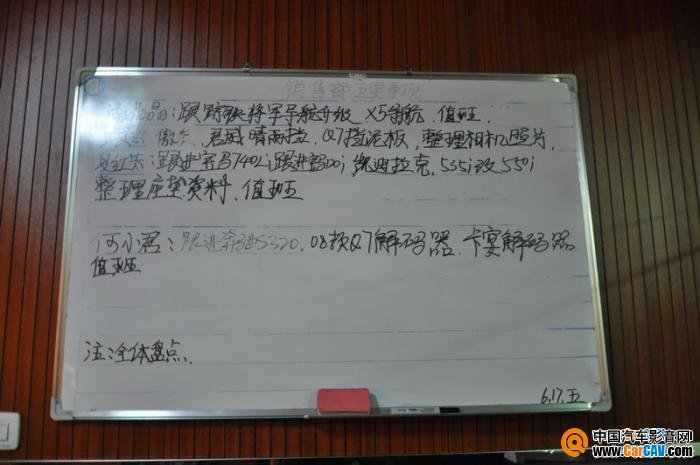 销售部主要事项
晶晶:跟踪铁将军导航升级 X5导航,值班.
跟进 傲虎,君威晴雨挡.Q7挡泥板,整理相机照片.
红英:跟进宝马740Li,凯迪拉克,535i改550i
整理座垫资料.值班
何小君:跟进奔驰S320.08款Q7解码器.卡宴解码器
值班
注:全体盘点.
6.17.五
中国汽车影音网
www.CarCAV.com